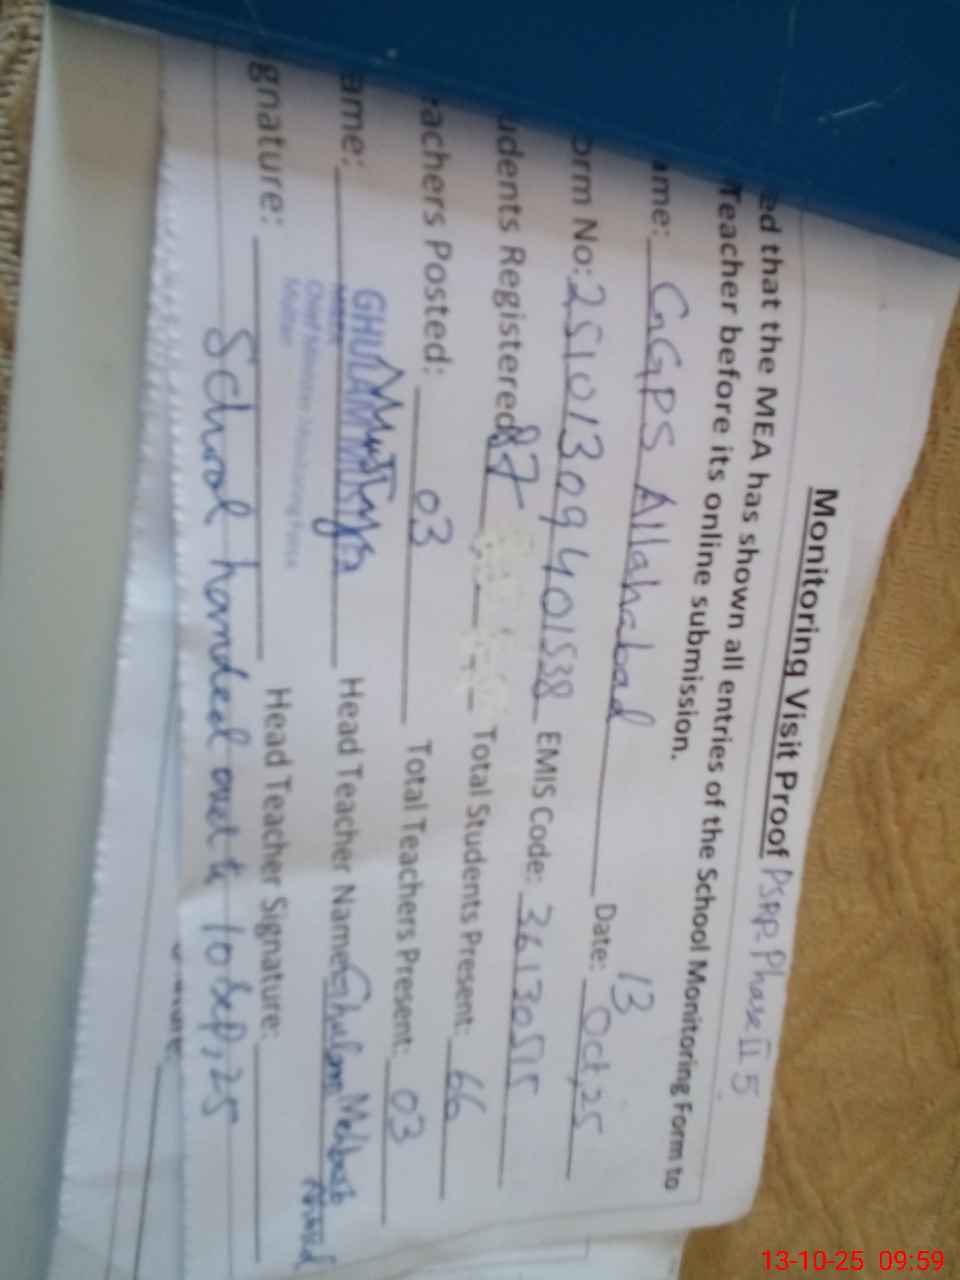 Monitoring Visit Proof PSRP. Phase II 5
ed that the MEA has shown all entries of the School Monitoring Form to
Teacher before its online submission.
ame: GGPS Allahabad Date: 13 Oct, 25
orm No: 25101309401538 EMIS Code: 36130515
udents Registered 87 Total Students Present: 66
achers Posted: 03 Total Teachers Present: 03
ame: GHULAM Head Teacher Name: Ghulam
Chief Minister Monitoring Force
Multan
gnature: Head Teacher Signature:
School handed over to 10 Sep, 25
13-10-25 09:59